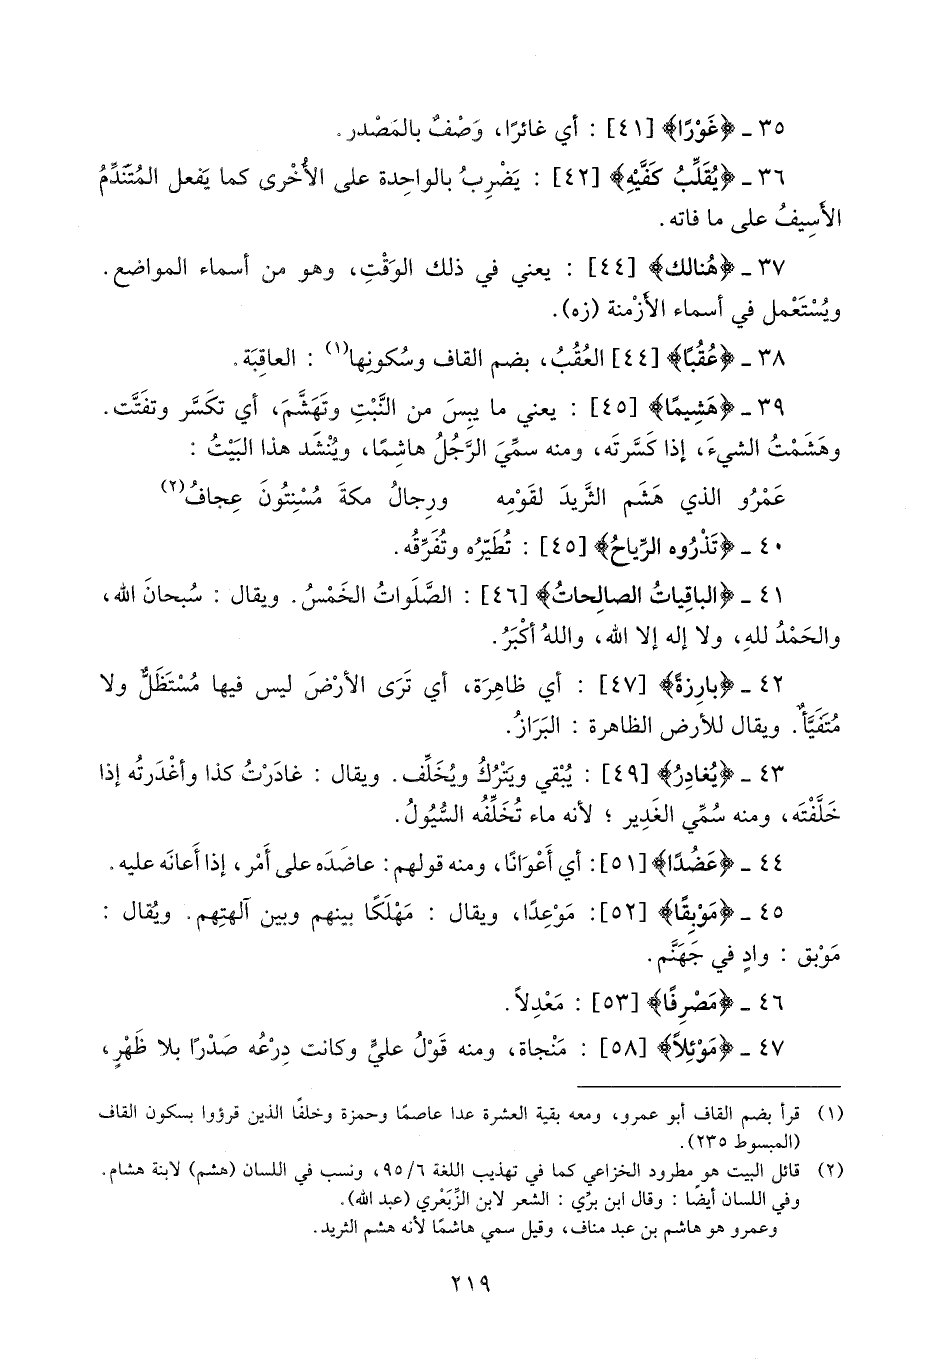 ٣٥ ـ ﴿غَوْرًا﴾ [٤١] : أي غائرًا، وَصْفٌ بالمَصْدر.
٣٦ ـ ﴿يُقَلِّبُ كَفَّيْهِ﴾ [٤٢] : يَضْرِبُ بالواحِدة على الأُخْرى كما يَفعل المُتَنَدِّمُ
الأَسِيفُ على ما فاته.
٣٧ ـ ﴿هُنالك﴾ [٤٤] : يعني في ذلك الوَقْتِ، وهو من أسماء المواضع.
ويُسْتَعْمل في أسماء الأَزْمنة (زه).
٣٨ ـ ﴿عُقُبًا﴾ [٤٤] العُقُبُ، بضم القاف وسُكونِها(١) : العاقِبَة.
٣٩ ـ ﴿هَشِيمًا﴾ [٤٥] : يعني ما يبِسَ من النَّبْتِ وتَهَشَّمَ، أي تكَسَّر وتفَتَّت.
وهَشَمْتُ الشيءَ، إذا كَسَّرتَه، ومنه سمِّيَ الرَّجُلُ هاشِمًا، ويُنْشَد هذا البَيْتُ :
عَمْرُو الذي هَشَم الثَّريدَ لقَوْمِه ورِجالُ مكةَ مُسْنِتُونَ عِجافُ(٢)
٤٠ ـ ﴿تَذْرُوه الرِّياحُ﴾ [٤٥] : تُطَيِّرُه وتُفَرِّقُه.
٤١ ـ ﴿الباقِياتُ الصالِحاتُ﴾ [٤٦] : الصَّلَواتُ الخَمْسُ. ويقال : سُبحانَ الله،
والحَمْدُ للهِ، ولا إله إلا الله، واللهُ أكْبَرُ.
٤٢ ـ ﴿بارِزةً﴾ [٤٧] : أي ظاهِرَة، أي تَرَى الأرْضَ ليس فيها مُسْتَظَلٌّ ولا
مُتَفَيَّأٌ. ويقال للأرض الظاهرة : البَرَازُ.
٤٣ ـ ﴿يُغادِرُ﴾ [٤٩] : يُبْقي ويَتْرُكُ ويُخَلِّف. ويقال : غادَرْتُ كذا وأغْدَرتُه إذا
خَلَّفْتَه، ومنه سُمِّي الغَدِير ؛ لأنه ماء تُخَلِّفُه السُّيُولُ.
٤٤ ـ ﴿عَضُدًا﴾ [٥١]: أي أَعْوَانًا، ومنه قولهم: عاضَدَه على أَمْر، إذا أَعانَه عليه.
٤٥ ـ ﴿مَوْبِقًا﴾ [٥٢]: مَوْعِدًا، ويقال : مَهْلَكًا بينهم وبين آلهتِهم. ويُقال :
مَوْبق : وادٍ في جَهَنَّم.
٤٦ ـ ﴿مَصْرِفًا﴾ [٥٣] : مَعْدِلاً.
٤٧ ـ ﴿مَوْئِلاً﴾ [٥٨] : مَنْجاة، ومنه قَوْلُ عليٍّ وكانت دِرْعُه صَدْرًا بلا ظَهْرٍ،
(١) قرأ بضم القاف أبو عمرو، ومعه بقية العشرة عدا عاصمًا وحمزة وخلفًا الذين قرؤوا بسكون القاف
(المبسوط ٢٣٥).
(٢) قائل البيت هو مطرود الخزاعي كما في تهذيب اللغة ٩٥/٦، ونسب في اللسان (هشم) لابنة هشام.
وفي اللسان أيضًا : وقال ابن برِّي : الشعر لابن الزِّبَعْري (عبد الله).
وعمرو هو هاشم بن عبد مناف، وقيل سمي هاشمًا لأنه هشم الثريد.
٢١٩